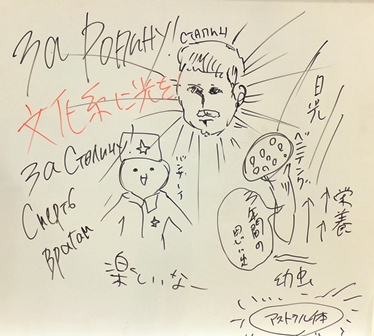 За Родину!
СТАЛИН
文化系に光を!
За Сталину!
Смерть
Врагам
楽しいなー
日光
栄養
3年間の
思い出
幼虫
アストラル体